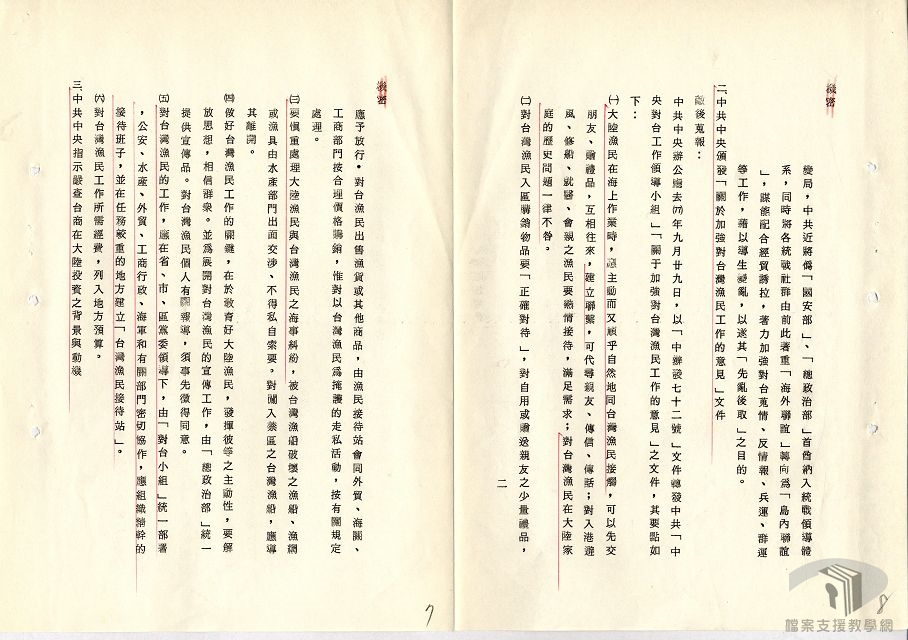 機密
變局,中共近將僞「國安部」、「總政治部」首酋納入統戰領導體
系,同時將各統戰社群由前此著重「海外聯誼」轉向爲「島內聯誼
」,謀能配合經貿誘拉,著力加強對台蒐情、反情報、兵運、群運
等工作,藉以導生變亂,以遂其「先亂後取」之目的。
二、中共中央頒發「關於加強對台灣漁民工作的意見」文件
敵後蒐報:
中共中央辦公廳去(77)年九月廿九日,以「中辦發七十二號」文件轉發中共「中
央對台工作領導小組」「關于加強對台灣漁民工作的意見」之文件,其要點如
下:
㈠大陸漁民在海上作業時,應主動而又順乎自然地同台灣漁民接觸,可以先交
朋友、贈禮品,互相往來,建立聯繫,可代尋親友、傳信、傳話;對入港避
風、修船、就醫、會親之漁民要熱情接待,滿足需求;對台灣漁民在大陸家
庭的歷史問題一律不咎。
㈡對台灣漁民入區購銷物品要「正確對待」,對自用或贈送親友之少量禮品,
二
8
機密
應予放行。對台漁民出售漁貨或其他商品,由漁民接待站會同外貿、海關、
工商部門按合理價格購銷,惟對以台灣漁民爲掩護的走私活動,按有關規定
處理。
㈢要慎重處理大陸漁民與台灣漁民之海事糾紛,被台灣漁船破壞之漁船、漁網
或漁具由水產部門出面交涉、不得私自索要。對闖入禁區之台灣漁船,應導
其離開。
㈣做好台灣漁民工作的關鍵,在於教育好大陸漁民,發揮彼等之主動性,要解
放思想,相信群衆。並爲展開對台灣漁民的宣傳工作,由「總政治部」統一
提供宣傳品。對台灣漁民個人有關報導,須事先徵得同意。
㈤對台灣漁民的工作,應在省、市、區黨委領導下,由「對台小組」統一部署
,公安、水產、外貿、工商行政、海軍和有關部門密切協作,應組織精幹的
接待班子,並在任務較重的地方建立「台灣漁民接待站」。
㈥對台灣漁民工作所需經費,列入地方預算。
三、中共中央指示嚴查台商在大陸投資之背景與動機
7
檔案支援教學網